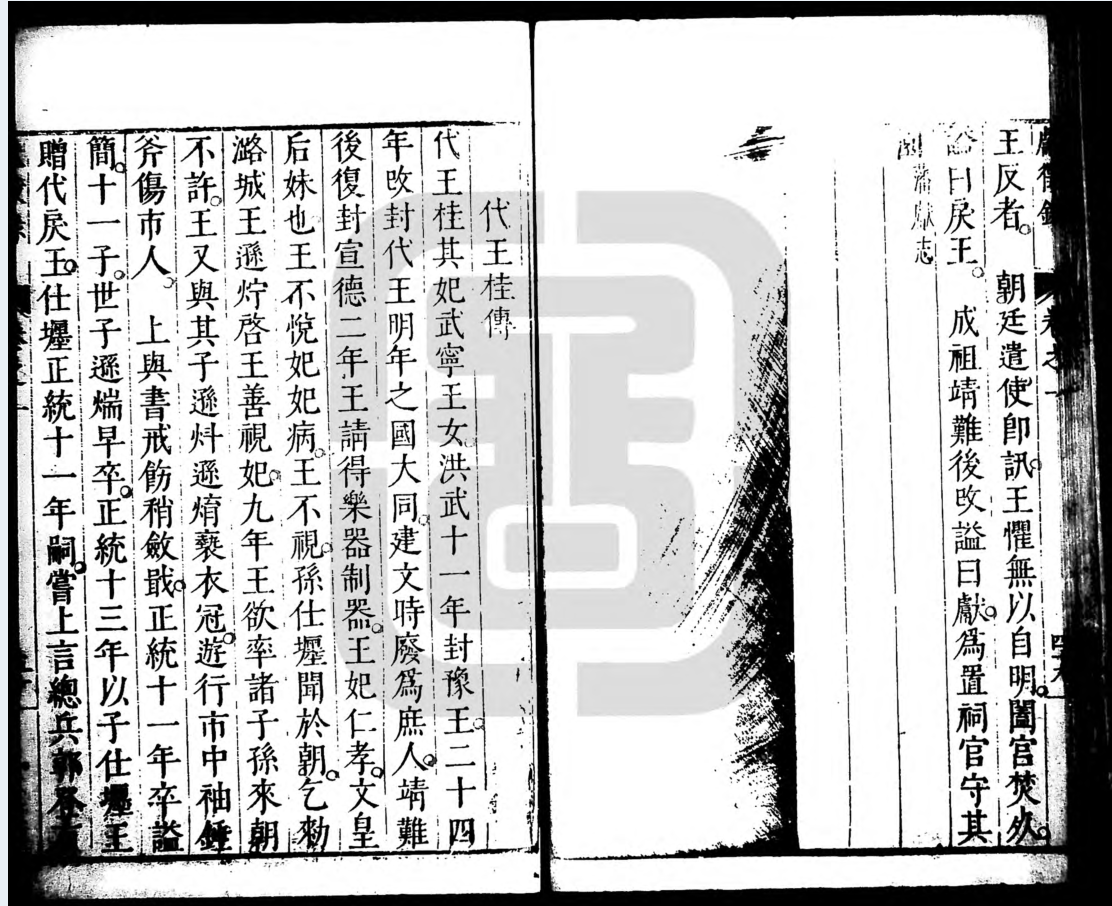 獻徵錄 卷之一 四九
王反者。　朝廷遣使卽訊。王懼無以自明。闔宮焚死。
謚曰戾王。　成祖靖難後改謚曰獻。爲置祠官守其
國藩獻志
代王桂傳
代王桂其妃武寧王女洪武十一年封豫王。二十四
年改封代王明年之國大同。建文時廢爲庶人。靖難
後復封宣德二年王請得樂器制器。王妃仁孝。文皇
后妹也王不悅妃妃病。王不視。孫仕𡒉聞於朝。乞勑
潞城王遜㶥啓王善視妃。九年王欲率諸子孫來朝
不許。王又與其子遜炓遜焴褻衣冠。遊行市中袖錘
斧傷市人。　上與書戒飭稍斂戢。正統十一年卒謚
簡。十一子。世子遜煓早卒。正統十三年以子仕𡒉王
贈代戾王。仕𡒉正統十一年嗣。嘗上言總兵郭登